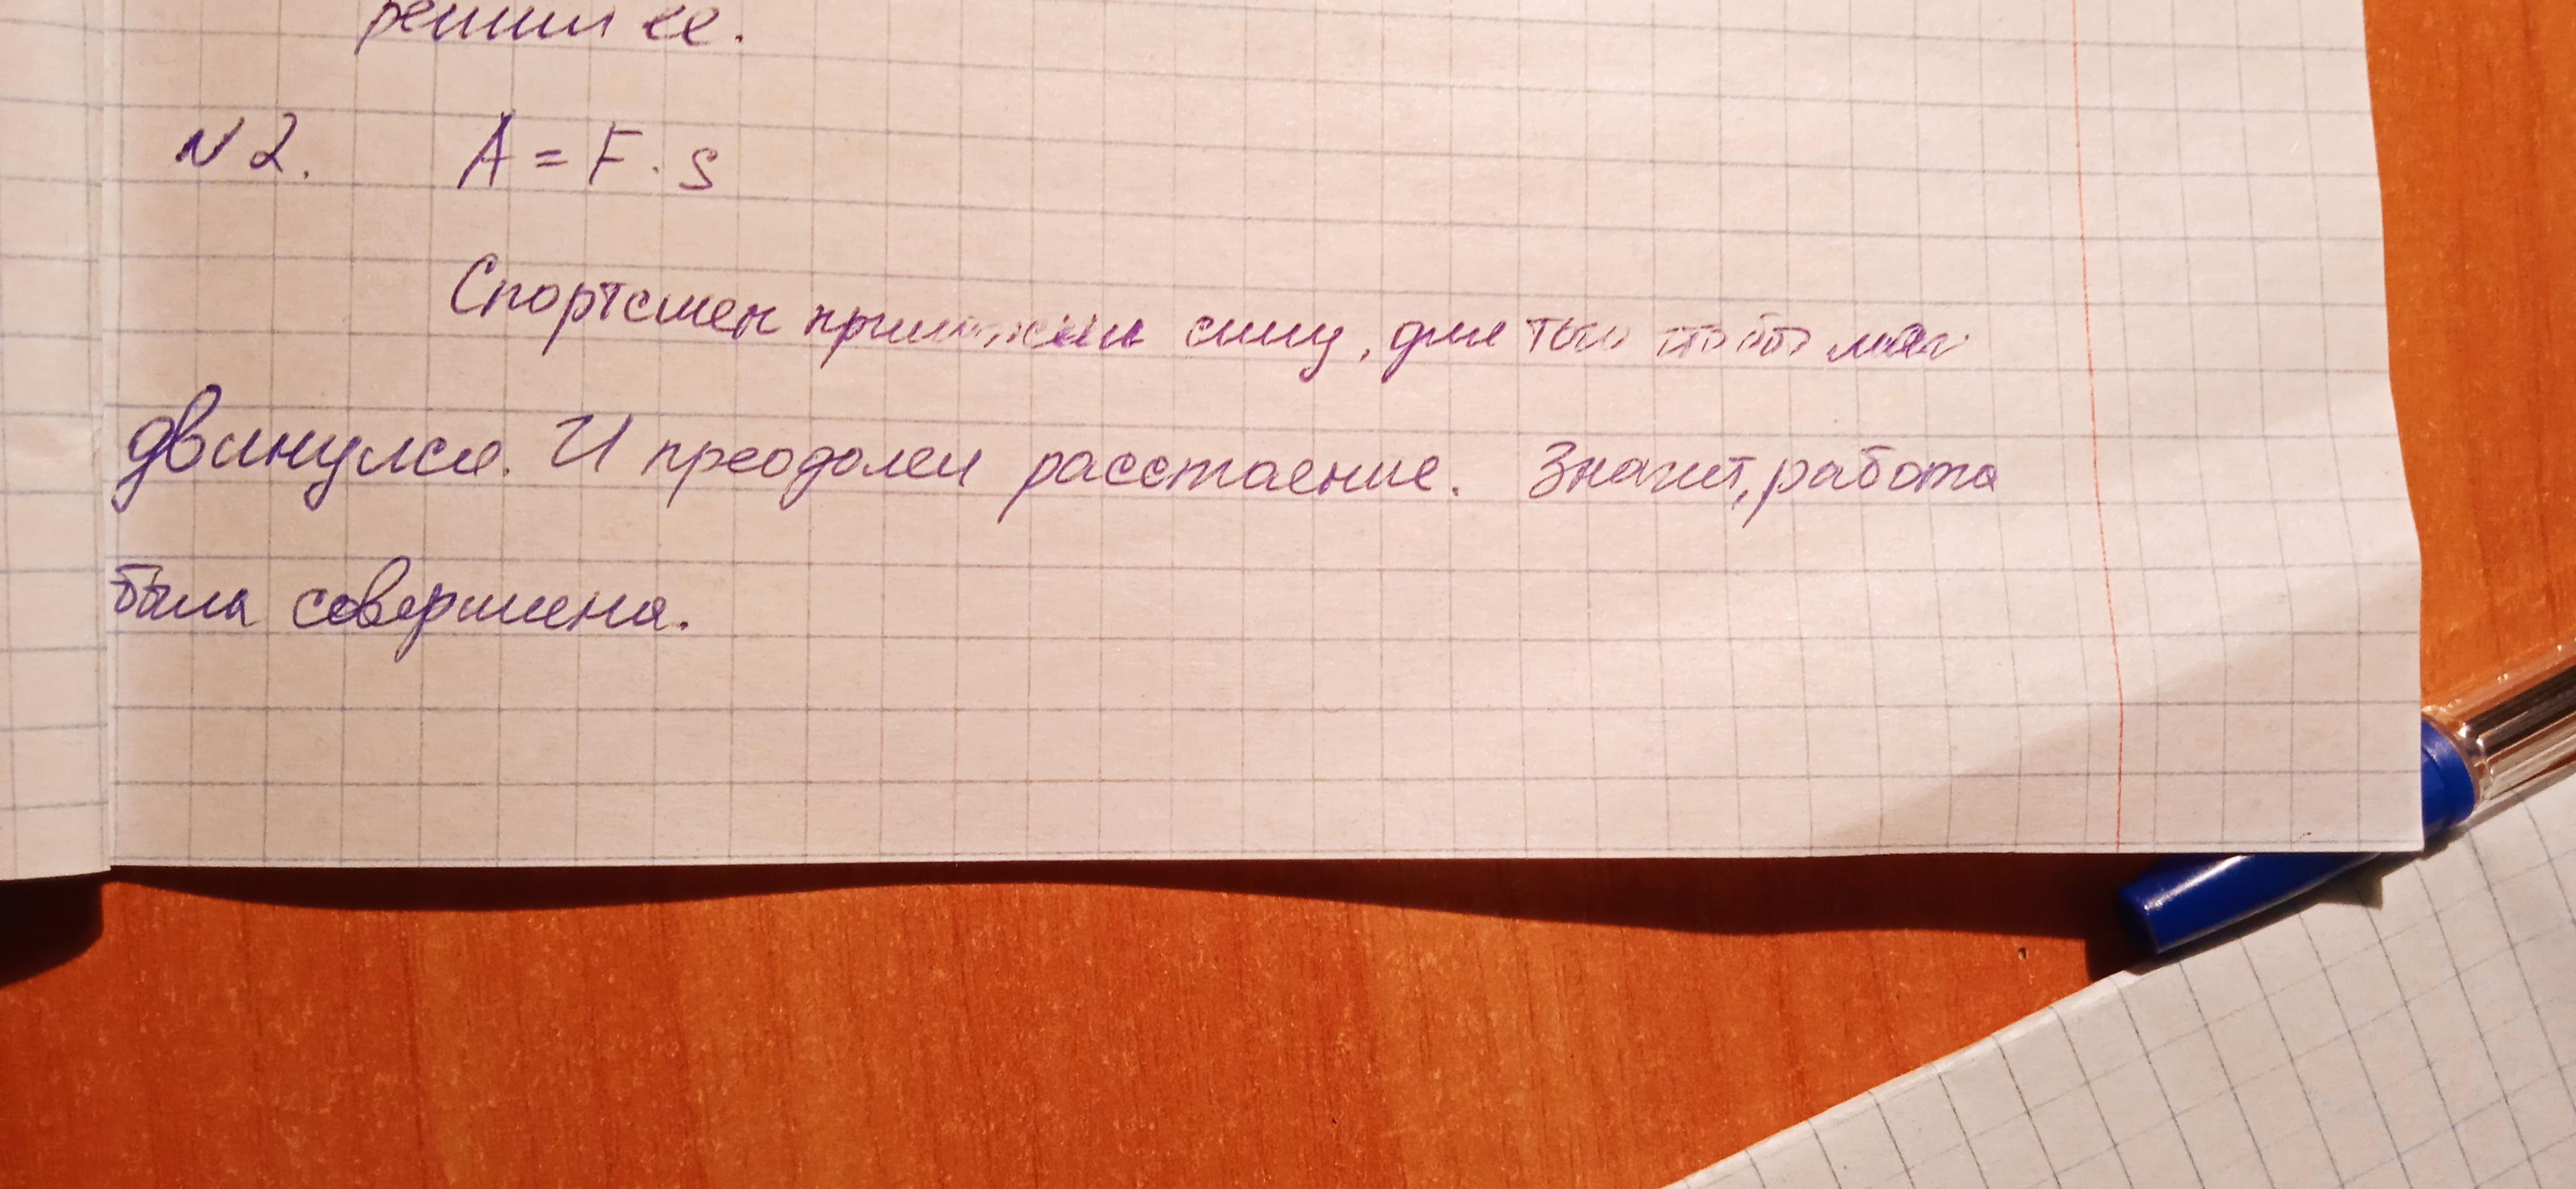 решил ее.
N2. A = F · s
Спортсмен приложил силу, для того чтобы мяч
двинулся. И преодолел расстоение. Значит, работа
была совершена.